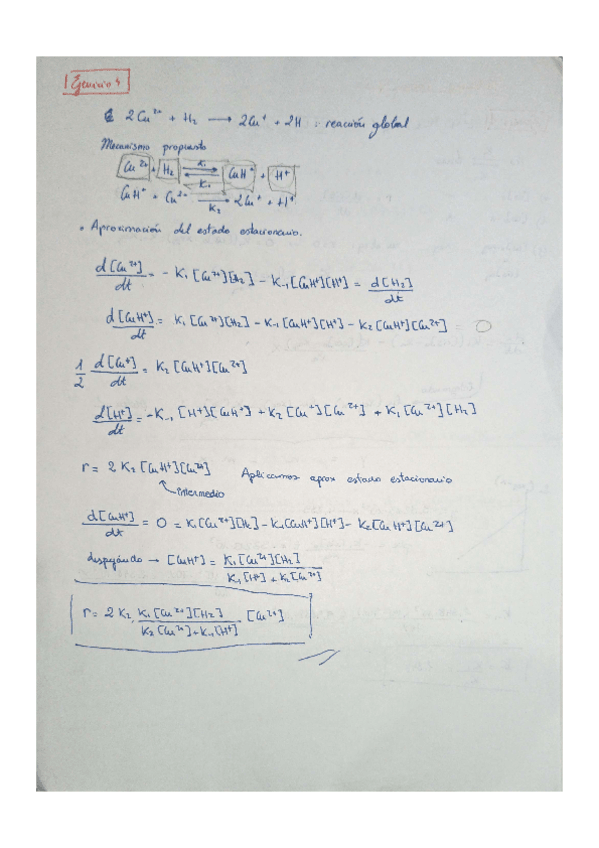 Ejercicio 4
2Cu²⁺ + H₂ ⟶ 2Cu⁺ + 2H : reacción global
Mecanismo propuesto
Cu²⁺ + H₂ ⇄ CuH⁺ + H⁺
K₁
K₋₁
CuH⁺ + Cu²⁺ ⟶ 2Cu⁺ + H⁺
K₂
• Aproximación del estado estacionario.
d[Cu²⁺]/dt = - K₁ [Cu²⁺][H₂] - K₋₁ [CuH⁺][H⁺] = d[H₂]/dt
d[CuH⁺]/dt = K₁ [Cu²⁺][H₂] - K₋₁ [CuH⁺][H⁺] - K₂ [CuH⁺][Cu²⁺] = 0
1/2 d[Cu⁺]/dt = K₂ [CuH⁺][Cu²⁺]
d[H⁺]/dt = -K₋₁ [H⁺][CuH⁺] + K₂ [Cu⁺][Cu²⁺] + K₁ [Cu²⁺][H₂]
r = 2 K₂ [CuH⁺][Cu²⁺] Aplicamos aprox estado estacionario
intermedio
d[CuH⁺]/dt = 0 = K₁[Cu²⁺][H₂] - K₋₁[CuH⁺][H⁺] - K₂[CuH⁺][Cu²⁺]
despejando → [CuH⁺] = K₁[Cu²⁺][H₂] / K₋₁[H⁺] + K₂[Cu²⁺]
r = 2 K₂ · K₁[Cu²⁺][H₂] / K₂[Cu²⁺] + K₋₁[H⁺] · [Cu²⁺]